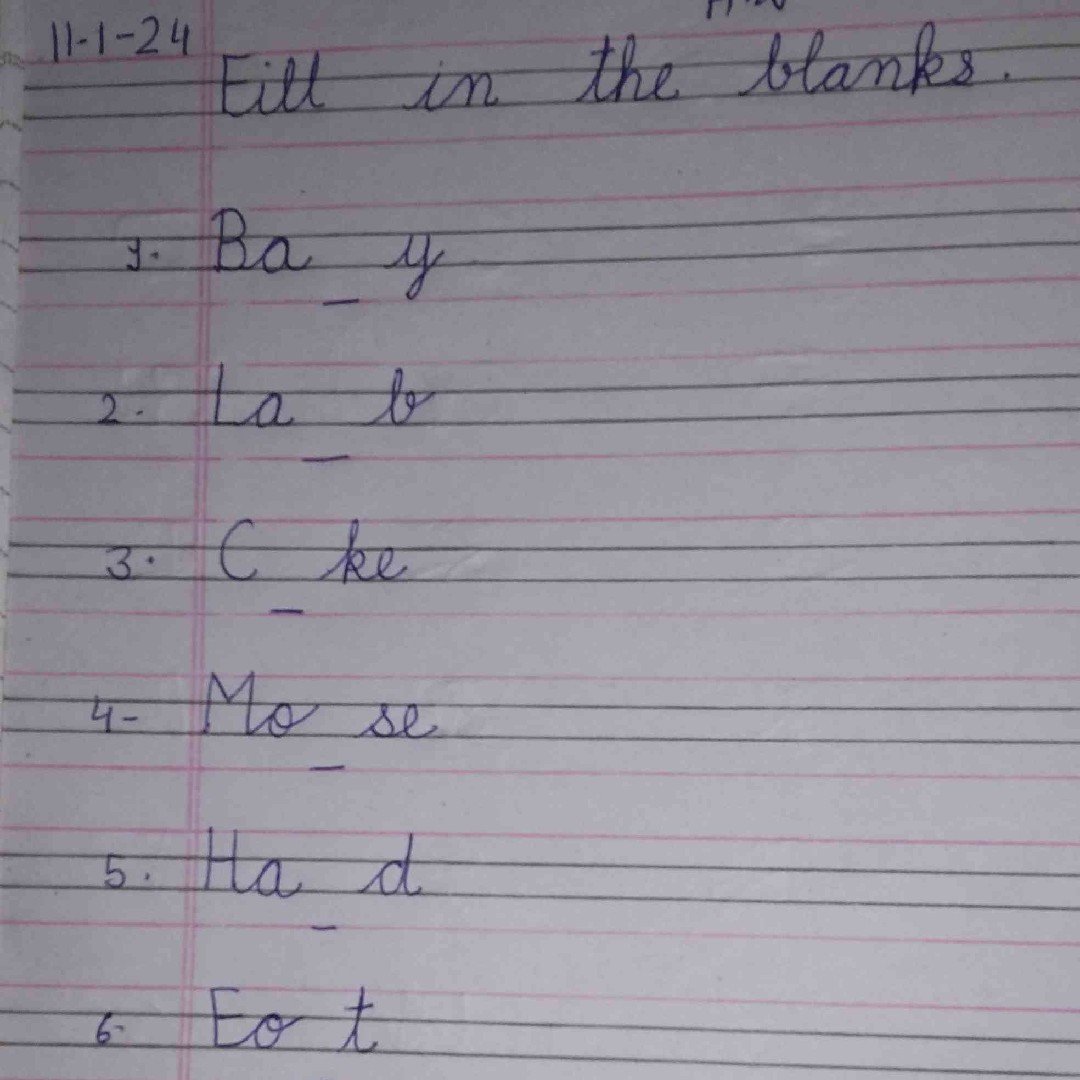 11-1-24
Fill in the blanks.
1. Ba _ y
2. La _ b
3. C _ ke
4- Mo _ se
5. Ha _ d
6- Fo t